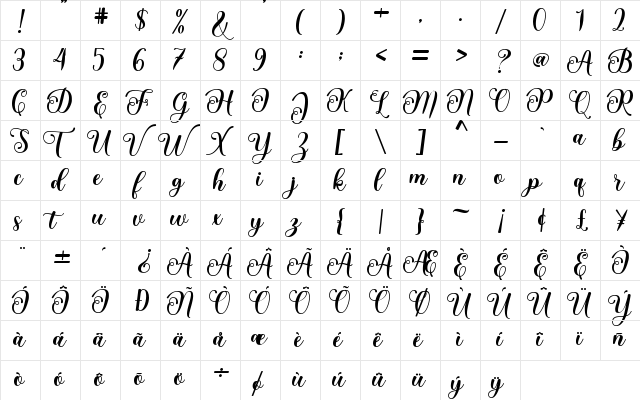 ! " # $ % & ' ( ) + , . / 0 1 2
3 4 5 6 7 8 9 : ; < = > ? @ A B
C D E F G H I J K L M N O P Q R
S T U V W X Y Z [ \ ] ^ _ ` a b
c d e f g h i j k l m n o p q r
s t u v w x y z { | } ~ ¡ ¢ £ ¥
¨ ± ´ ¿ À Á Â Ã Ä Å Æ È É Ê Ë Ì
Í Î Ï Ð Ñ Ò Ó Ô Õ Ö Ø Ù Ú Û Ü Ý
à á â ã ä å æ è é ê ë ì í î ï ñ
ò ó ô õ ö ÷ ø ù ú û ü ý ÿ